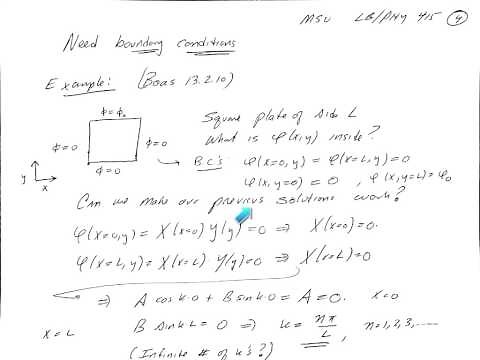 MSU LB/PHY 415 4
Need boundary conditions
Example: (Boas 13.2.10)
Φ = Φ₀
Φ = 0
Φ = 0
Φ = 0
y
x
Square plate of side L
What is φ(x,y) inside?
BC's: φ(x=0,y) = φ(x=L,y) = 0
φ(x,y=0) = 0, φ(x,y=L) = φ₀
Can we make our previous solutions work?
φ(x=0,y) = X(x=0) Y(y) = 0 ⇒ X(x=0) = 0.
φ(x=L,y) = X(x=L) Y(y) = 0 ⇒ X(x=L) = 0
⇒ A cos k·0 + B sin k·0 = A = 0. x=0
x=L B sin kL = 0 ⇒ k = nπ/L, n=1,2,3,...
(Infinite # of k's?)